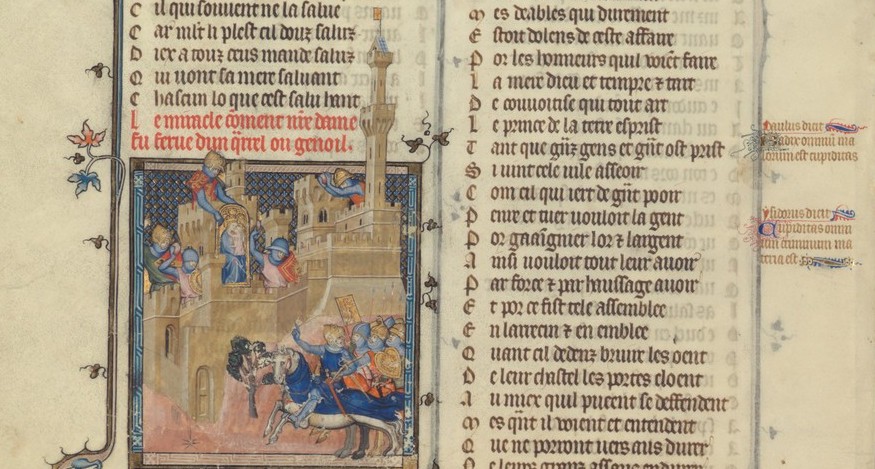 C il qui souuent ne la salue
C ar mlt li plest cil douz saluz
D iex a touz ceus mande saluz
Q ui uont sa mere saluant
C hascun lo que cest salu hant
L e miracle cōment nr̄e dame
fu ferue dun qrrel ou genoil.
M es deables qui durement
E stoit dolens de ceste affaire
P or les honneurs quil uoiēt faire
L a mere dieu et tempre ⁊ tart
D e couuoitise qui tout art
L e prince de la terre esprist
T ant que gñz gens et gñt ost prist
S i uint cele uile asseoir
C om cil qui iert de gñt pooir
P enre et tuer uouloit la gent
P or gaaignier lor ⁊ largent
A insi uouloit tout leur auoir
P ar force ⁊ par haussage auoir
E t por ce fist tele assemblee
E n larrecin ⁊ en emblee
Q uant cil dedenz bruire les oent
D e leur chastel les portes cloent
A u miex quil pueent se deffendent
M es qñt il uoient et entendent
Q ue ne porront uers aus durer
Paulus dicit
Radix omniū ma
lorum est cupiditas
Ysidorus dicit
Cupiditas omni
um criminum ma
teria est